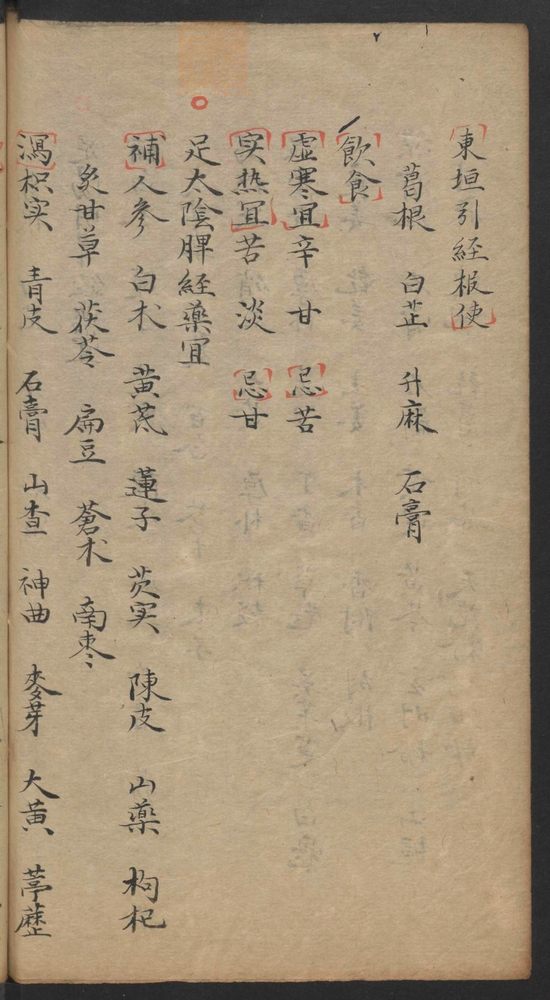 東垣引経报使
葛根 白芷 升麻 石膏
飲食
虚寒宜辛甘 忌苦
实热宜苦淡 忌甘
足太陰脾経藥宜
補人參 白术 黄芪 蓮子 芡实 陳皮 山藥 枸杞
炙甘草 茯苓 扁豆 蒼术 南枣
瀉枳实 青皮 石膏 山查 神曲 麥芽 大黄 葶藶